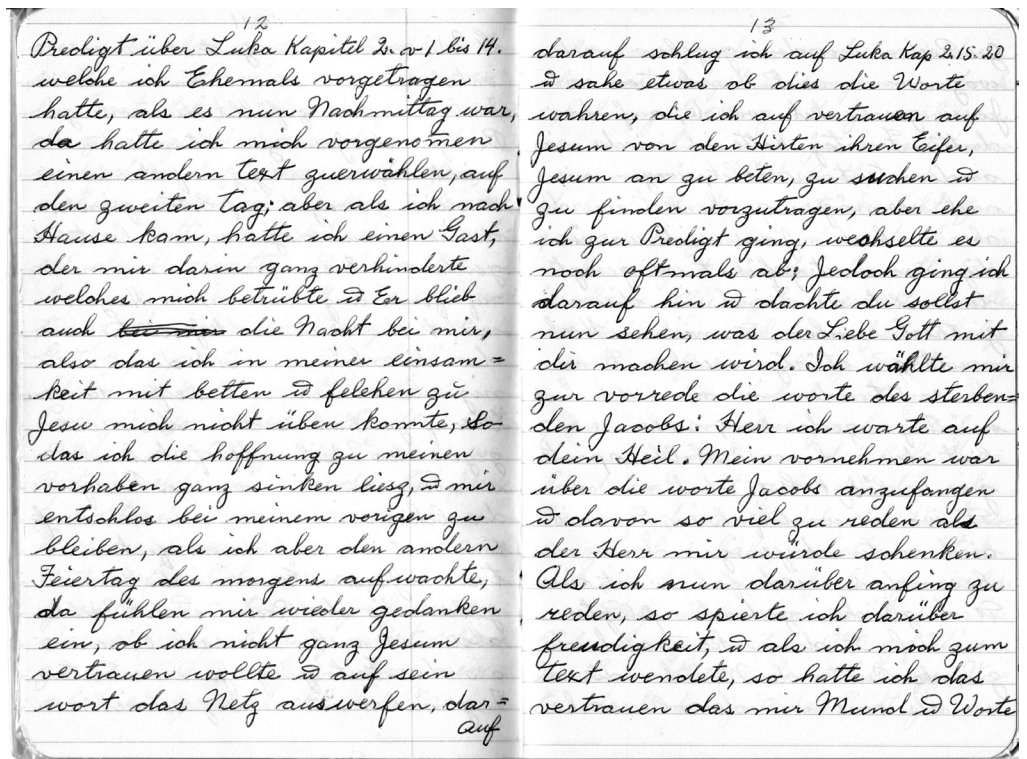 12
Predigt über Luka Kapitel 2. v 1 bis 14.
welche ich Ehemals vorgetragen
hatte, als es nun Nachmittag war,
da hatte ich mich vorgenomen
einen andern text zuerwählen, auf
den zweiten tag; aber als ich nach
Hause kam, hatte ich einen Gast,
der mir darin ganz verhinderte
welches mich betrübte u Er blieb
auch die Nacht bei mir,
also das ich in meiner einsam=
keit mit betten u felehen zu
Jesu mich nicht üben konnte, So
das ich die hoffnung zu meinen
vorhaben ganz sinken liesz, u mir
entschlos bei meinem vorigen zu
bleiben, als ich aber den andern
Feiertag des morgens aufwachte,
da fühlen mir wieder gedanken
ein, ob ich nicht ganz Jesum
vertrauen wollte u auf sein
wort das Netz auswerfen, dar=
auf
13
darauf schlug ich auf Luka Kap 2.15-20
u sahe etwas ob dies die Worte
wahren, die ich auf vertrauen auf
Jesum von den Hirten ihren Eifer,
Jesum an zu beten, zu suchen u
zu finden vorzutragen, aber ehe
ich zur Predigt ging, wechselte es
noch oftmals ab; Jedoch ging ich
darauf hin u dachte du sollst
nun sehen, was der Liebe Gott mit
dir machen wird. Ich wählte mir
zur vorrede die worte des sterben=
den Jacobs: Herr ich warte auf
dein Heil. Mein vornehmen war
über die worte Jacobs anzufangen
u davon so viel zu reden als
der Herr mir würde schenken.
Als ich nun darüber anfing zu
reden, so spierte ich darüber
freudigkeit, u als ich mich zum
text wendete, so hatte ich das
vertrauen das mir Mund u Worte